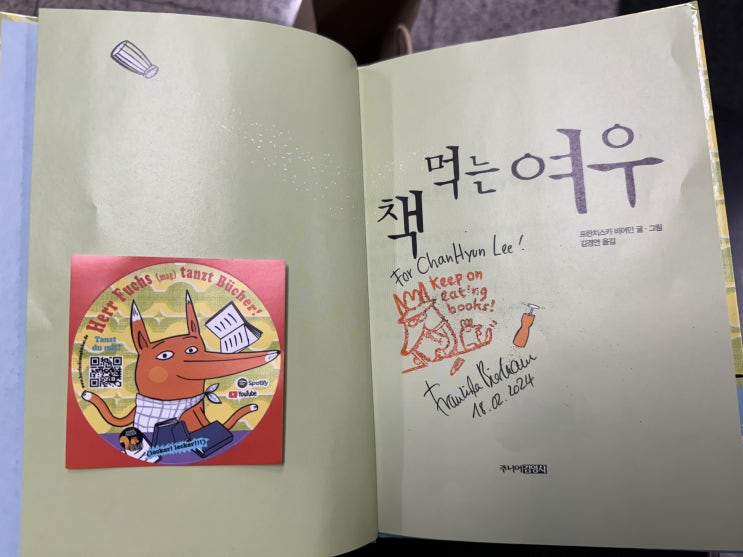 Herr Fuchs (mag) tanzt Bücher!
Tanzt
du mit?
Spotify
YouTube
(lecker! lecker!!!)
책 먹는 여우
프란치스카 비어만 글·그림
김경연 옮김
For ChanHyun Lee!
Keep on
eating
books!
Franziska Biermann
18.02.2024
주니어김영사